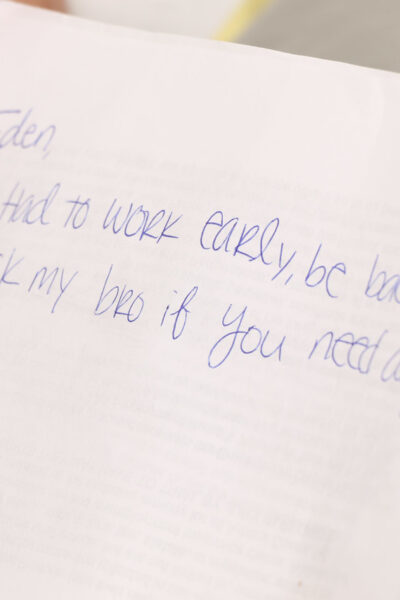 Eden,
Had to work early, be
my bro if you need